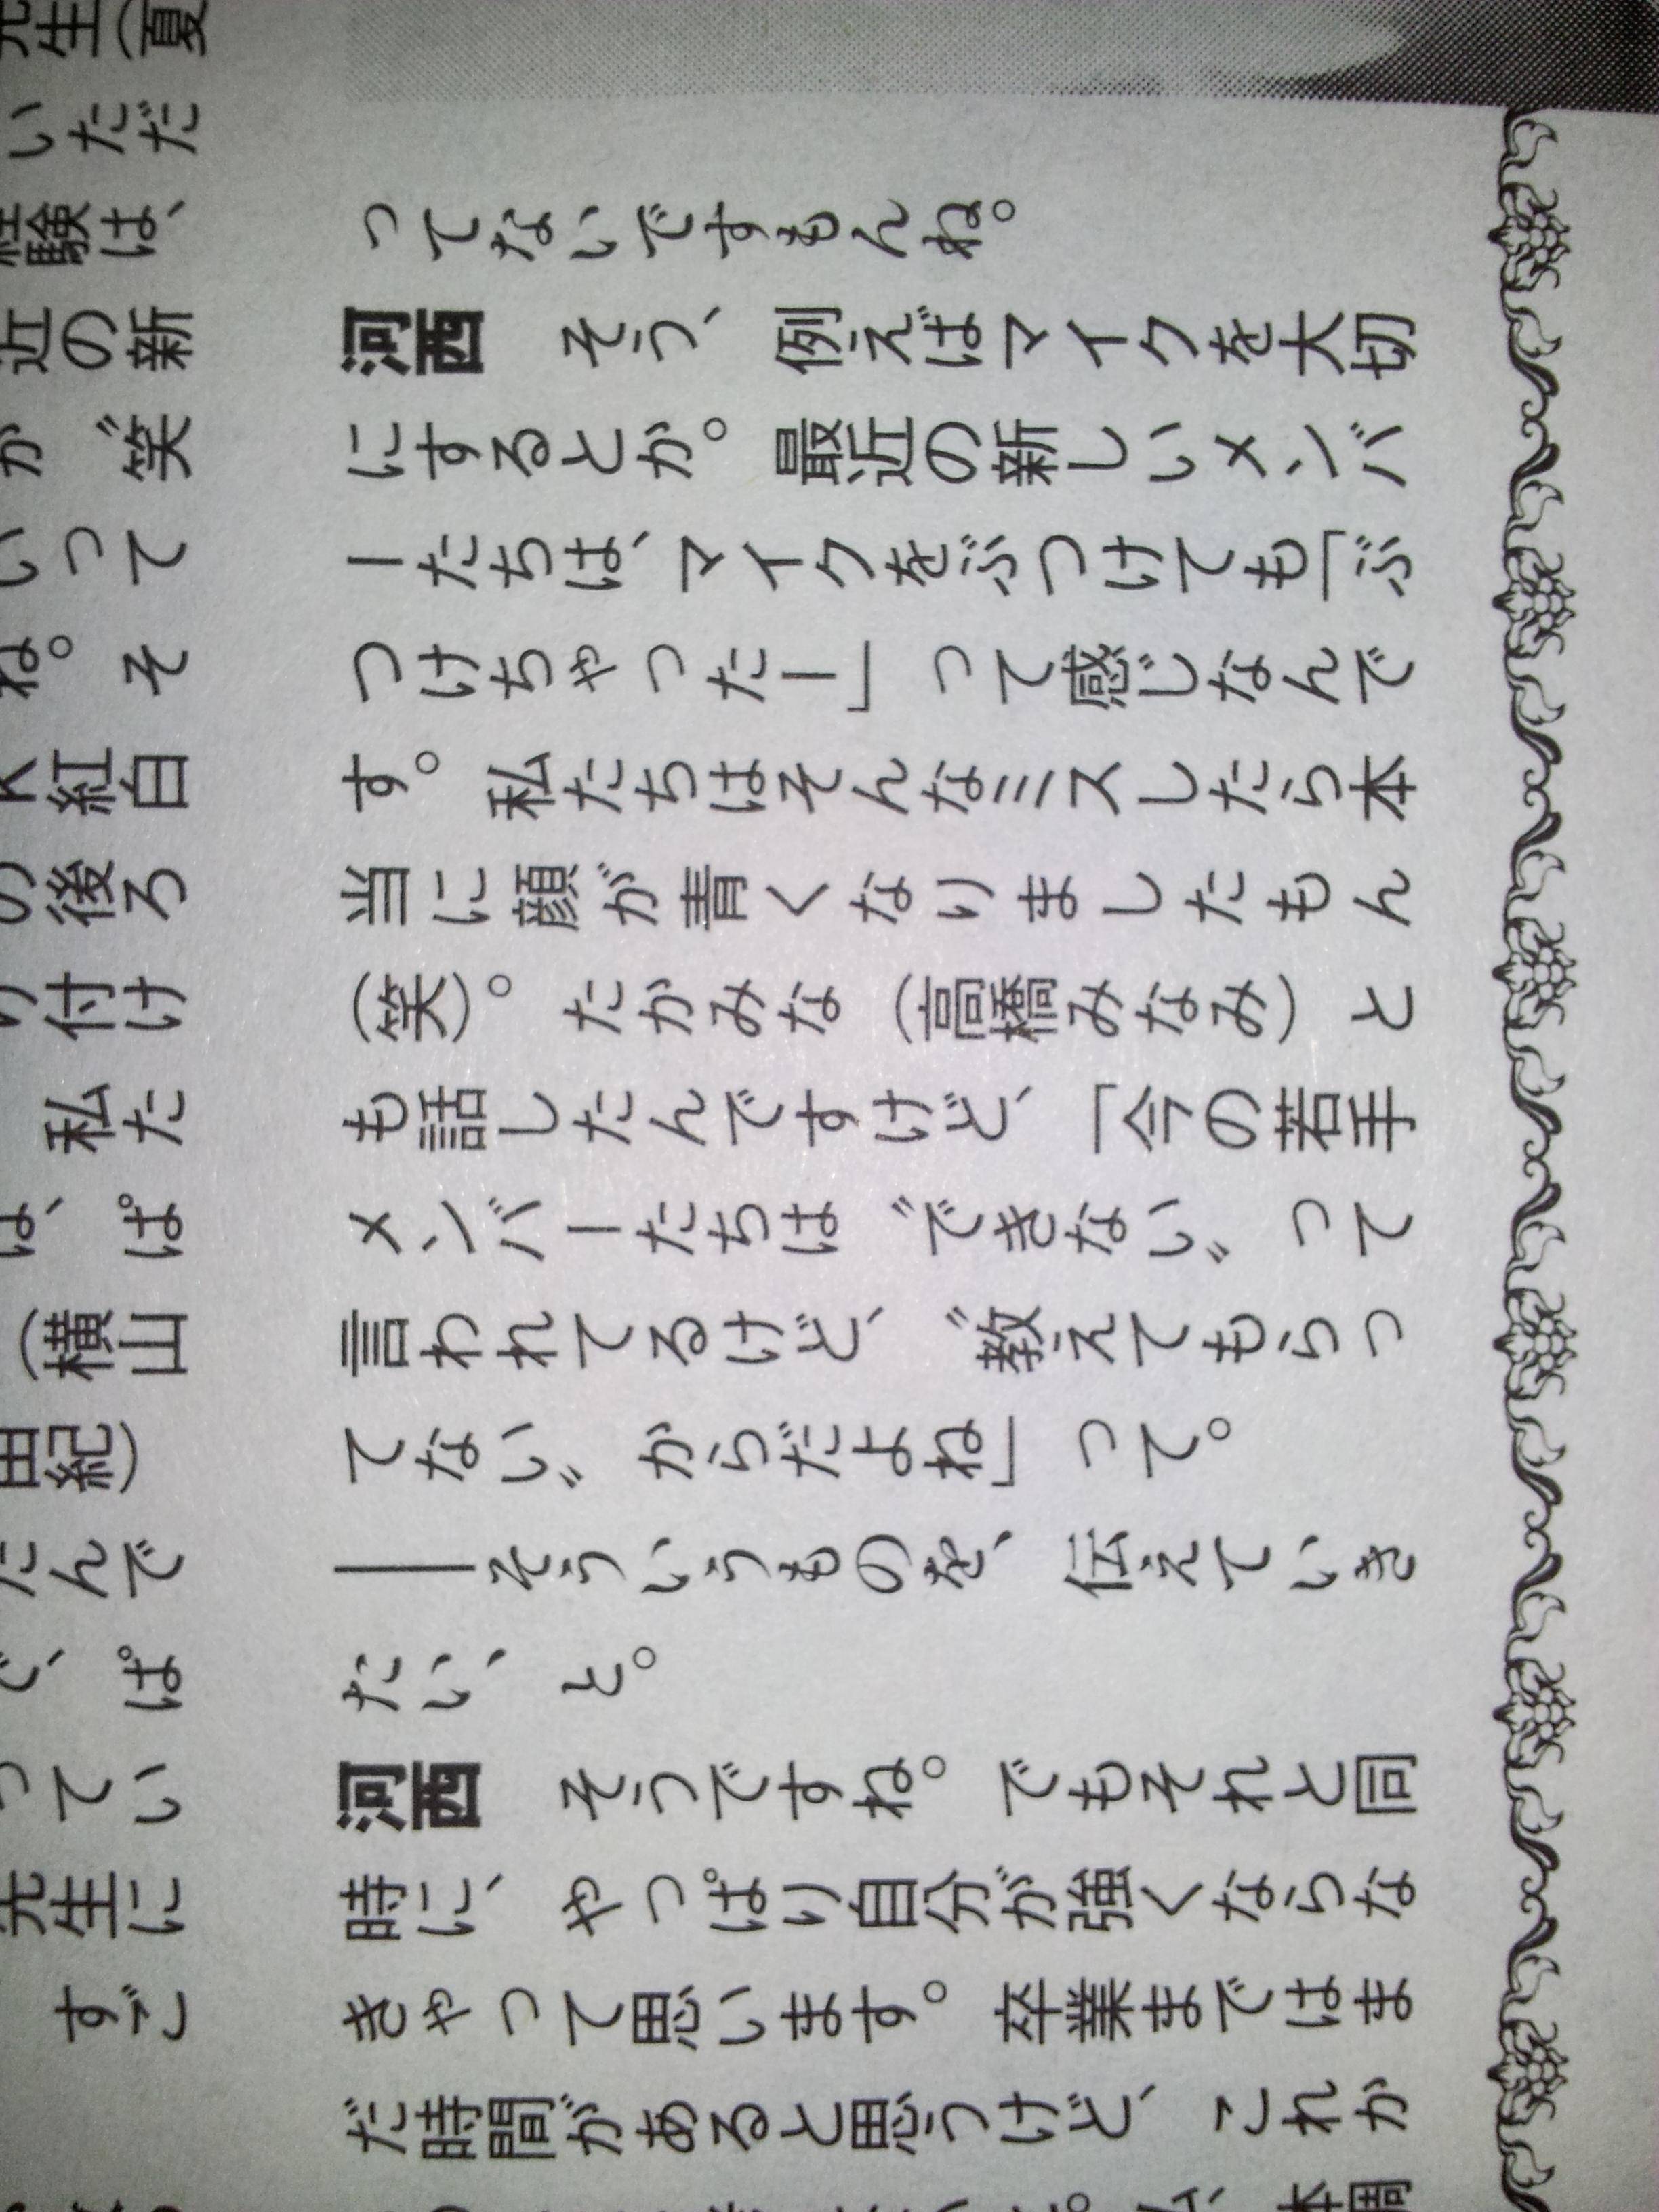 先生(夏
いただ
経験は、
近の新
が〝笑
いって
ね。そ
K紅白
の後ろ
り付け
私た
は、ぱ
(横山
由紀)
たんで
で、ぱ
ってい
先生に
すご
ってないですもんね。
河西 そう、例えばマイクを大切
にするとか。最近の新しいメンバ
ーたちは、マイクをぶつけても「ぶ
つけちゃったー」って感じなんで
す。私たちはそんなミスしたら本
当に顔が青くなりましたもん
(笑)。たかみな(高橋みなみ)と
も話したんですけど、「今の若手
メンバーたちは〝できない〟って
言われてるけど、〝教えてもらっ
てない〟からだよね」って。
――そういうものを、伝えていき
たい、と。
河西 そうですね。でもそれと同
時に、やっぱり自分が強くならな
きゃって思います。卒業まではま
だ時間があると思うけど、これか